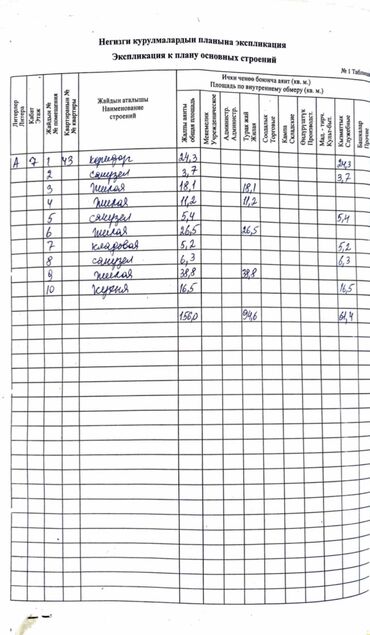 Негизги курулмалардын планына экспликация
Экспликация к плану основных строений
№ 1 Таблица
Литерлер Литера
Кабат Этаж
Жайдын № № помещения
Квартиранын № № квартиры
Жайдын аталышы Наименование строений
Ички ченөө боюнча аянт (кв. м.)
Площадь по внутреннему обмеру (кв. м.)
Жалпы аянты общая площадь
Мекемелик Учрежденческое
Администр. Администр.
Турак жай Жилая
Соодалык Торговые
Кампа Складские
Өндүрүштүк Производст.
Кызматтык Служебные
Башкалар Прочие
А 7 1 43 коридор 24,3 24,3
2 санузел 3,7 3,7
3 жилая 18,1 18,1
4 жилая 11,2 11,2
5 санузел 5,4 5,4
6 жилая 26,5 26,5
7 кладовая 5,2 5,2
8 санузел 6,3 6,3
9 жилая 38,8 38,8
10 кухня 16,5 16,5
156,0 94,6 61,4